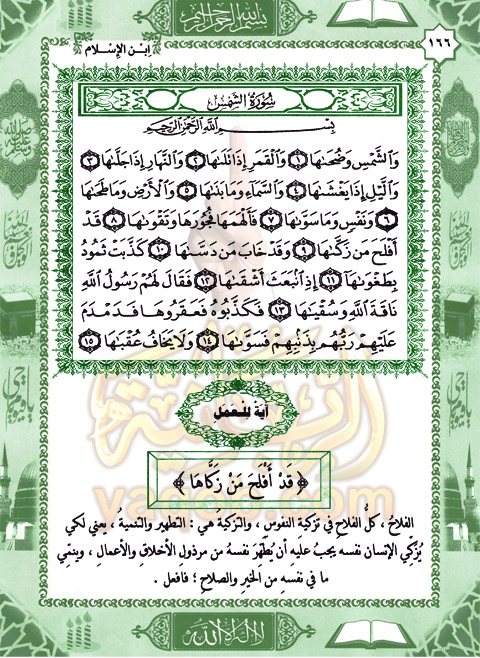 بسم الله الرحمن الرحيم
١٦٦
ابن الإسلام
سورة الشمس
بسم الله الرحمن الرحيم
وَالشَّمْسِ وَضُحَىٰهَا ١ وَالْقَمَرِ إِذَا تَلَىٰهَا ٢ وَالنَّهَارِ إِذَا جَلَّىٰهَا ٣
وَالَّيْلِ إِذَا يَغْشَىٰهَا ٤ وَالسَّمَاءِ وَمَا بَنَىٰهَا ٥ وَالْأَرْضِ وَمَا طَحَىٰهَا
٦ وَنَفْسٍ وَمَا سَوَّىٰهَا ٧ فَأَلْهَمَهَا فُجُورَهَا وَتَقْوَىٰهَا ٨ قَدْ
أَفْلَحَ مَن زَكَّىٰهَا ٩ وَقَدْ خَابَ مَن دَسَّىٰهَا ١٠ كَذَّبَتْ ثَمُودُ
بِطَغْوَىٰهَا ١١ إِذِ انۢبَعَثَ أَشْقَىٰهَا ١٢ فَقَالَ لَهُمْ رَسُولُ اللَّهِ
نَاقَةَ اللَّهِ وَسُقْيَٰهَا ١٣ فَكَذَّبُوهُ فَعَقَرُوهَا فَدَمْدَمَ
عَلَيْهِمْ رَبُّهُم بِذَنۢبِهِمْ فَسَوَّىٰهَا ١٤ وَلَا يَخَافُ عُقْبَٰهَا ١٥
آيَة لِلْعَمَلِ
﴿ قَدْ أَفْلَحَ مَنْ زَكَّاهَا ﴾
الفلاحُ ، كلُّ الفلاحِ في تزكيةِ النفوس ، والتزكيةُ هي : التطهيرُ والتنميةُ ، يعني لكي
يُزكِّي الإنسان نفسه يجبُ عليهِ أن يُطهِّرَ نفسهُ من مرذولِ الأخلاقِ والأعمالِ ، وينمِّي
ما في نفسهِ من الخيرِ والصلاحِ ؛ فافعل .
لا إله إلا الله